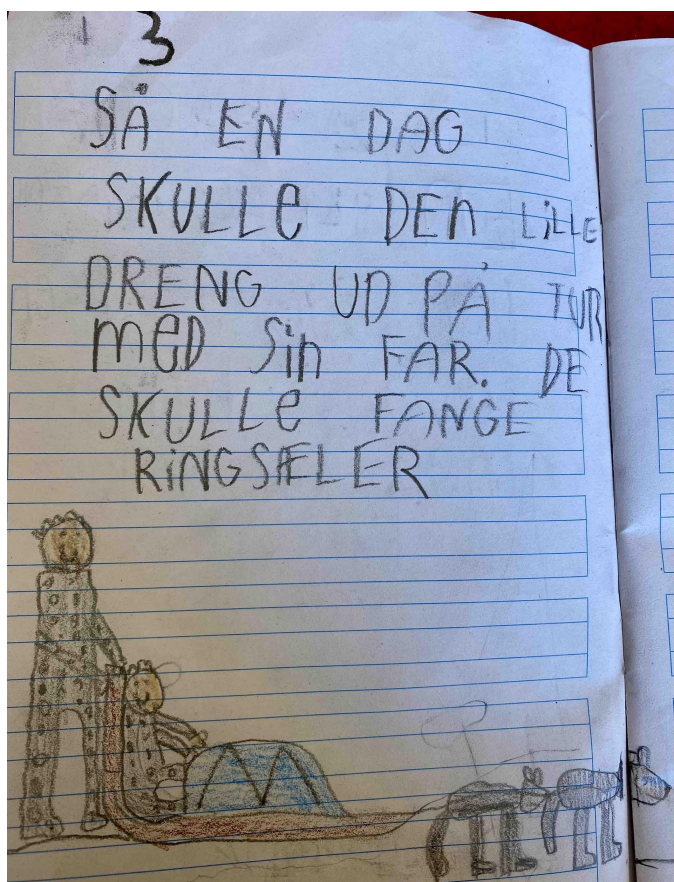 3
SÅ EN DAG
SKULLe DEn LiLLE
DRENG UD PÅ TUR
meD Sin FAR. DE
SKULLe FANGE
RiNGSÆLER